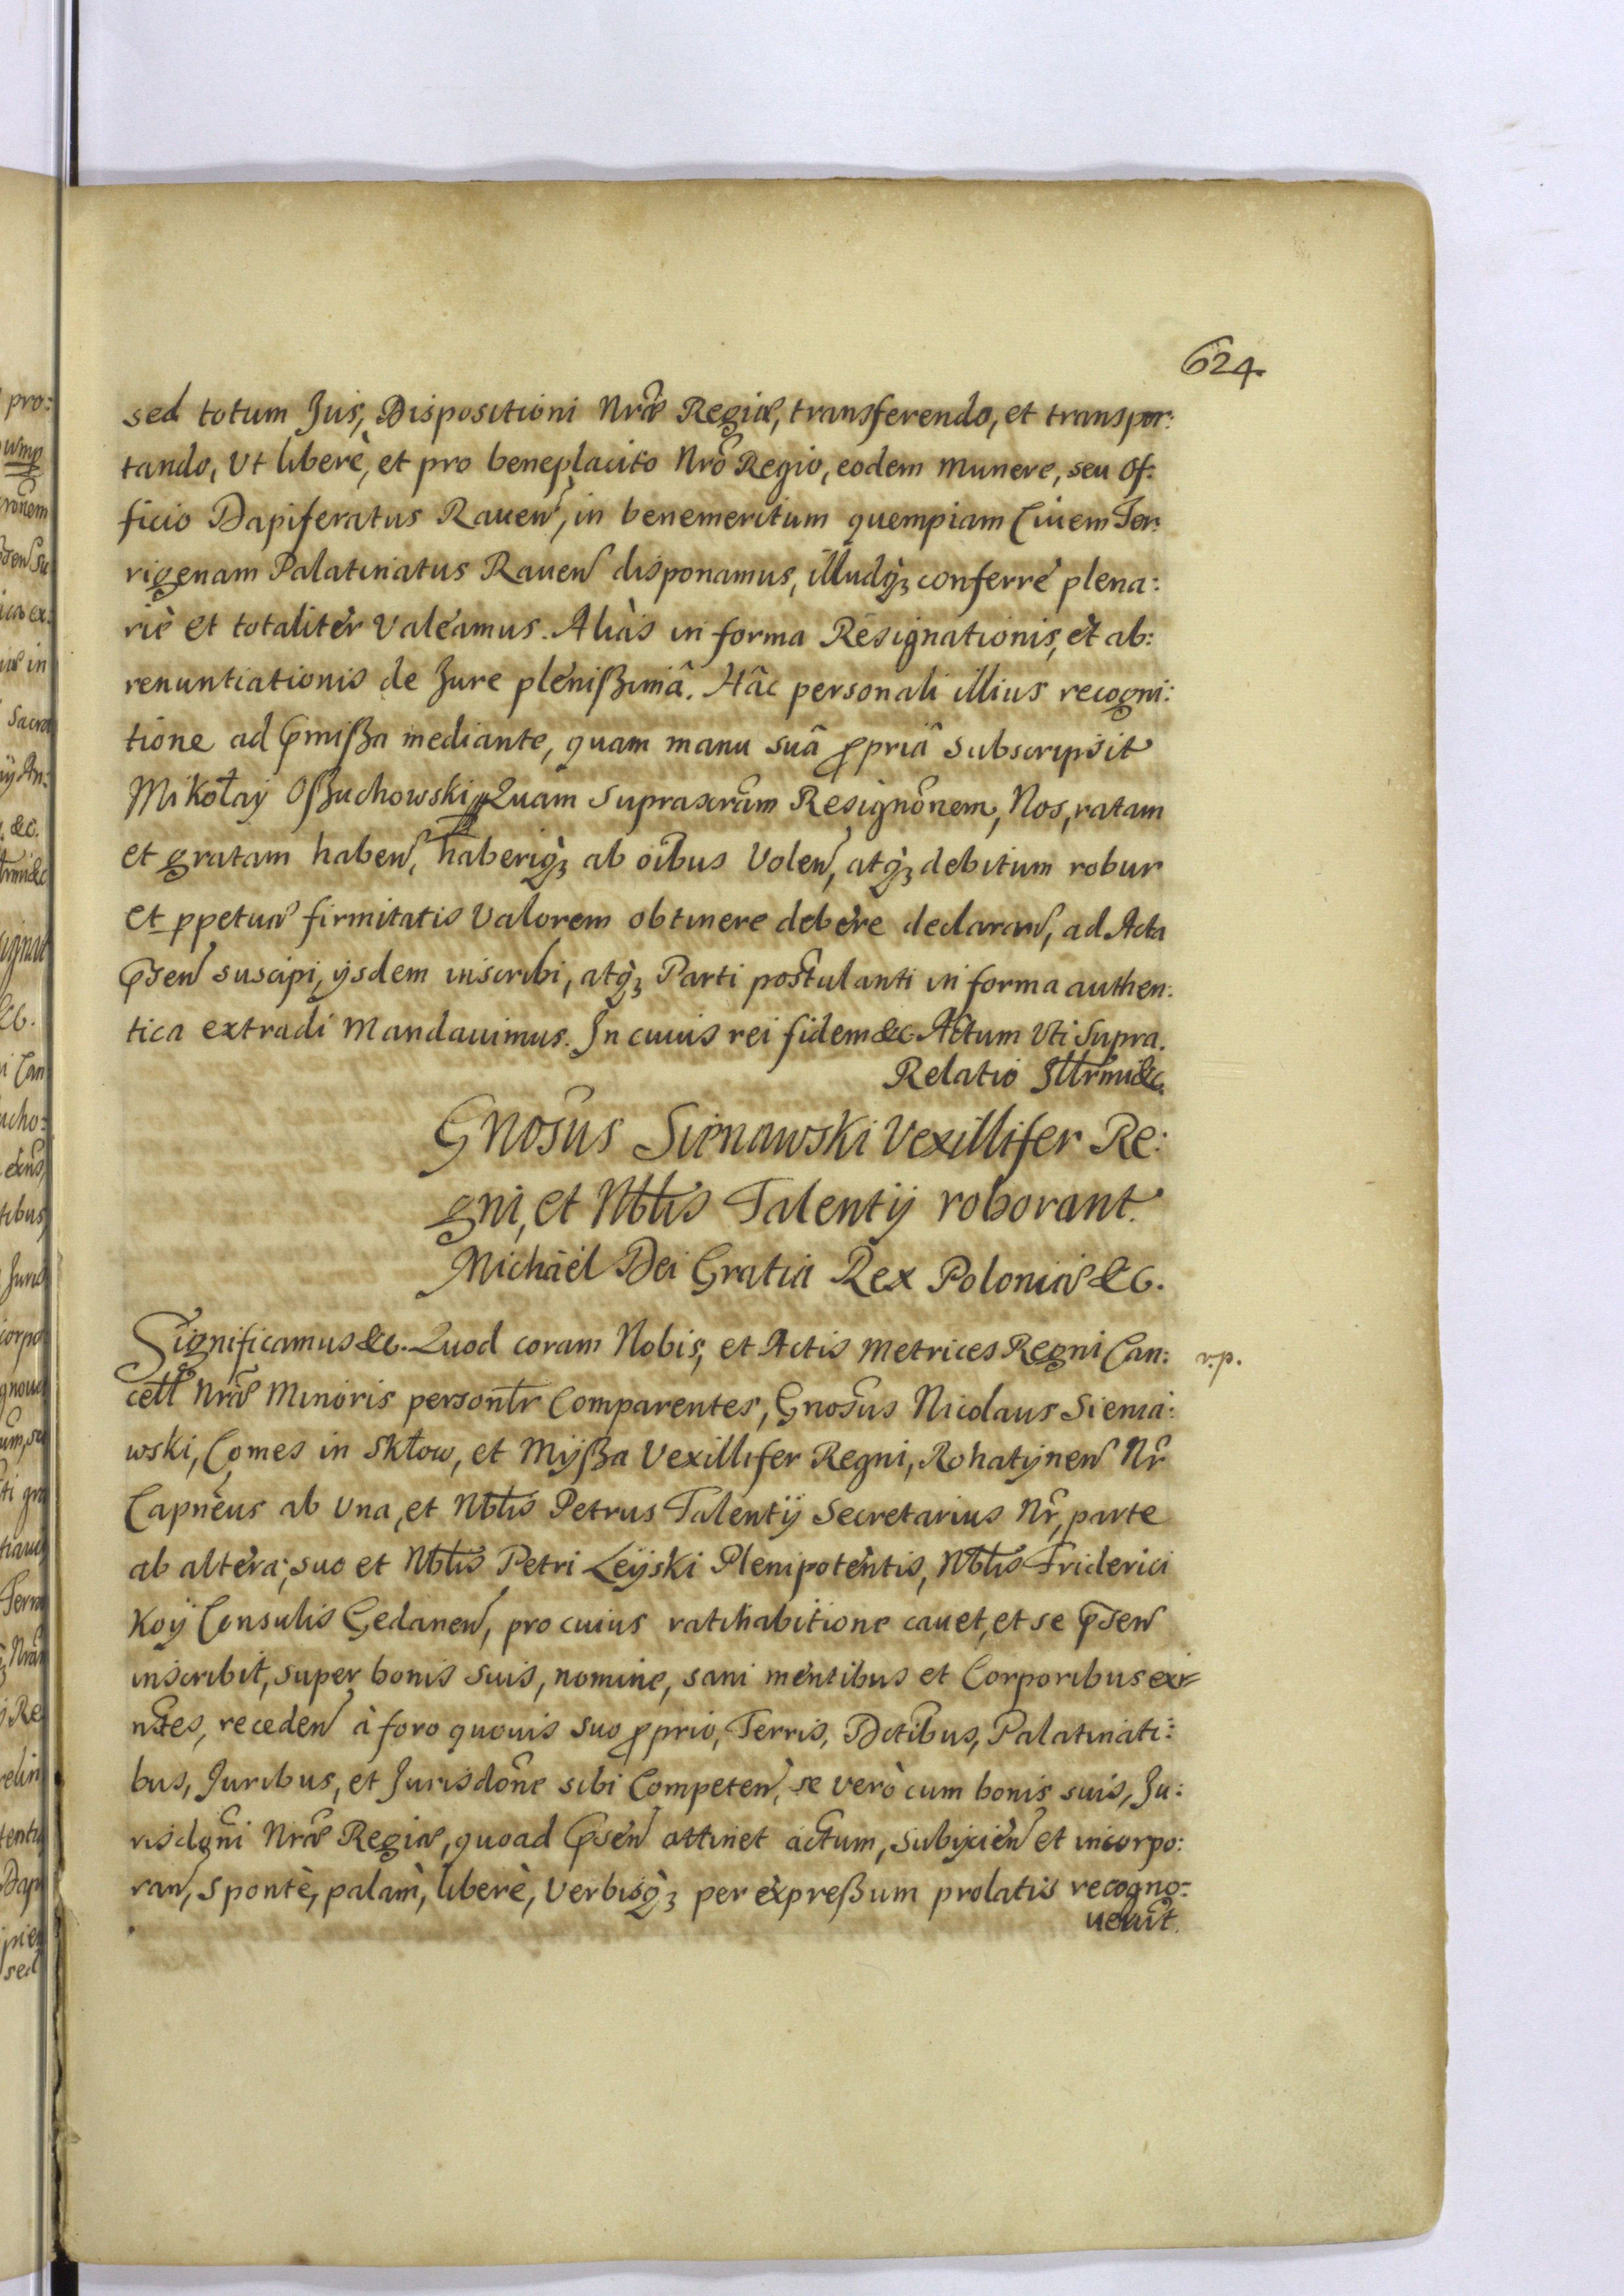 624.
sed totum Jus, Dispositioni Nræ Regiæ, transferendo, et transpor:
tando, Ut liberè, et pro beneplacito Nrõ Regio, eodem munere, seu Of:
ficio Dapiferatus Raueñ, in benemeritum quempiam Ciuem Ter:
rigenam Palatinatus Raueñ disponamus, illudq̀ʒ conferre plena:
riè et totalitèr Valeamus. Aliàs in forma Resignationis, et ab:
renuntiationis de Jure plenißimâ. Hâc personali illius recogni:
tione ad p̃mißa mediante, quam manu suâ ꝓpriâ subscripsit
Mikołaÿ Oßuchowski, Quam suprascrãm Resignõnem, Nos, ratam
et gratam habeñ, haberiq̀ʒ ab oĩbus Voleñ, atq̀ʒ debitum robur
et ꝑpetuæ firmitatis Valorem obtinere debere declarañ, ad Acta
p̃señ suscipi, ÿsdem inscribi, atq̀ʒ Parti postulanti in forma authen:
tica extradi Mandauimus. In cuius rei fidem &c. Actum Uti Supra.
Relatio Illr̃mi &c.
Gnosũs Sienawski Vexillifer Re:
gni, et Nbłis Talentÿ roborant.
Michäel Dei Gratia Rex Poloniæ &c.
Significamus &c. Quod coram Nobis, et Actis Metrices Regni Can: r.p.
cełł Nræ Minoris persontr̃ Comparentes, Gnosũs Nicolaus Sienia:
wski, Comes in Skłow, et Mÿßa Vexillifer Regni, Rohatÿneñ Nr̃
Capnẽus ab Una, et Nbłis Petrus Talentÿ Secretarius Nr̃, parte
ab altera; suo et Nbłis Petri Leÿski Plenipotentis, Nbłis Friderici
Koÿ Consulis Gedaneñ, pro cuius ratihabitione cauet, et se p̃señ
inscribit, super bonis suis, nomine, sani mentibus et Corporibus exi=
ntẽs, recedeñ à foro quouis suo ꝓprio, Terris, Dctĩbus, Palatinati:
bus, Juribus, et Jurisdõne sibi Competeñ, se verò cum bonis suis, Ju:
risdõni Nræ Regiæ, quoad p̃señ attinet actum, subijcieñ et incorpo:
rañ, Spontè, palàm, liberè, Verbisq̀ʒ per expreßum prolatis recogno:
uerũt.